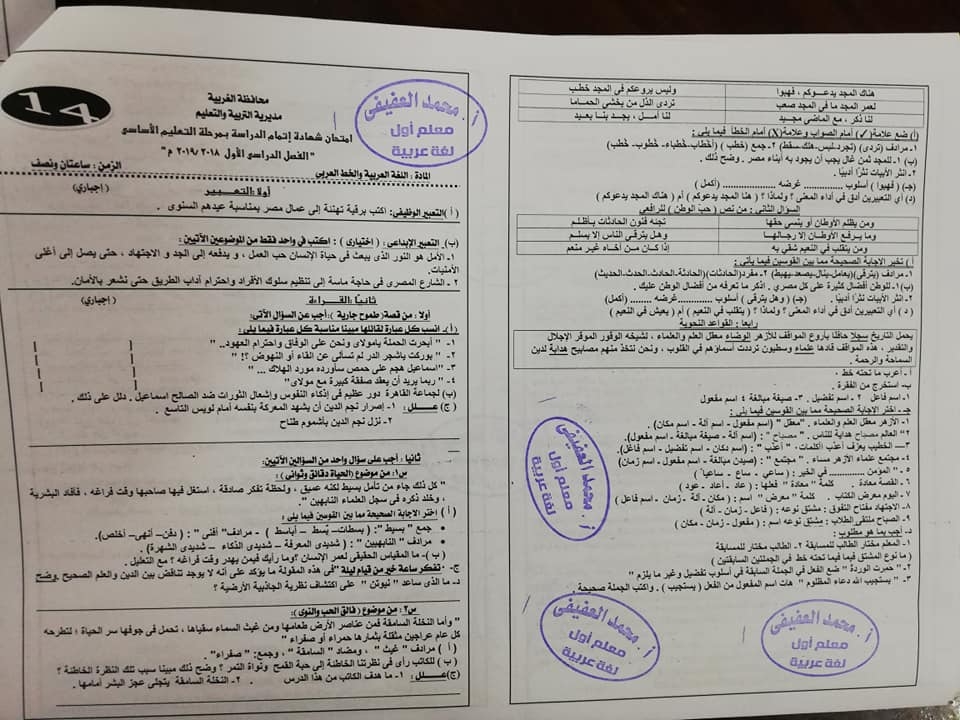 14
محافظة الغربية
مديرية التربية والتعليم
امتحان شهادة إتمام الدراسة بمرحلة التعليم الأساسى
"الفصل الدراسى الأول ٢٠١٩/٢٠١٨ م"
المادة : اللغة العربية والخط العربى
الزمن : ساعتان ونصف
أ. محمد العفيفى
معلم أول
لغة عربية
أولا: التعبير (اجبارى)
( أ ) التعبير الوظيفى: اكتب برقية تهنئة إلى عمال مصر بمناسبة عيدهم السنوى .
(ب)ـ التعبير الإبداعى : ( اختيارى ) : اكتب فى واحد فقط من الموضوعين الآتيين:
١- الأمل هو النور الذى يبعث فى حياة الإنسان حب العمل ، و يدفعه إلى الجد و الاجتهاد ، حتى يصل إلى أغلى الأمنيات .
٢ - الشارع المصرى فى حاجة ماسة إلى تنظيم سلوك الأفراد واحترام آداب الطريق حتى تشعر بالأمان.
ثانيا: القراءة (اجبارى)
أولا : من قصة( طموح جارية ): أجب عن السؤال الآتى:
(أ)ـ انسب كل عبارة لقائلها مبينا مناسبة كل عبارة فيما يلى :
١- " أبحرت الحملة يامولاى ونحن على الوفاق واحترام العهود.. "
٢- " بوركت ياشجر الدر لم تسألى عن القاء أو النهوض ؟! "
٣- "اسماعيل هجم على حمص سأورده مورد الهلاك ... "
٤- " ربما يريد أن يعقد صفقة كبيرة مع مولاى"
(ب) لجماعة القاهرة دور عظيم فى إذكاء النفوس وإشعال الثورات ضد الصالح اسماعيل . دلل على ذلك .
(ج) علل : ١- إصرار نجم الدين أن يشهد المعركة بنفسه أمام لويس التاسع .
٢- نزل نجم الدين بأشموم طناح
ثانيا : أجب على سؤال واحد من السؤالين الآتيين:
س١: من موضوع (الحياة دقائق وثوانى) :
" كل ذلك جاء من تأمل بسيط لكنه عميق ، ولحظة تفكر صادقة ، استغل فيها صاحبها وقت فراغه ، فأفاد البشرية
، وخلد ذكره فى سجل العلماء النابهين "
( أ ) اختر الإجابة الصحيحة مما بين القوسين فيما يلى :
• جمع " بسيط ": (بسطات- بُسط – أباسط ) - مرادف" أفنى " : ( دفن- أنهى- أخلص).
• مرادف " النابهين " : ( شديدى المعرفة – شديدى الذكاء – شديدى الشهرة).
( ب )- ما المقياس الحقيقى لعمر الإنسان ؟وما رأيك فيمن يهدر وقت فراغه ؟ مع التعليل .
ج- "تفكر ساعة خير من قيام ليلة "فى هذه المقولة ما يؤكد على أنه لا يوجد تناقض بين الدين والعلم الصحيح .وضح
د- ما الذى ساعد " نيوتن " على اكتشاف نظرية الجاذبية الأرضية ؟
س٢ : من موضوع ( فالق الحب والنوى ):
" وأما النخلة السامقة فمن عناصر الأرض طعامها ومن غيث السماء سقياها ، تحمل فى جوفها سر الحياة ؛ لتطرحه
كل عام عراجين مثقلة بثمارها حمراء أو صفراء "
( أ ) مرادف " غيث " ، ومضاد " السامقة " ، وجمع: " صفراء" .
( ب ) للكاتب رأى فى نظرتنا الخاطئة إلى حبة القمح ونواة التمر ؟ وضح ذلك مبينا سبب تلك النظرة الخاطئة ؟
(ج) علل : ١- ما هدف الكاتب من هذا الدرس . ٢- النخلة السامقة يتجلى عجز البشر أمامها .
هناك المجد يدعوكم ، فهبوا وليس يروعكم فى المجد خطب
لعمر المجد ما فى المجد صعب تردى الذل من يخشى الحماما
لنا ذكر ، مع الماضى مجيد لنا أمل ، يجد بنا بعيد
(أ) ضع علامة(✓) أمام الصواب وعلامة(X) أمام الخطأ فيما يلى :
١- مرادف (تردى) (تجرد-لبس-هلك-سقط) ٢- جمع (خطب ) (أخطاب-خطباء- خطوب- خُطب)
(ب) ١- للمجد ثمن غال يجب أن يجود به أبناء مصر . وضح ذلك .
٢- انثر الأبيات نثرًا أدبيًا .
(جـ) ( فهبوا ) أسلوب ............... غرضه ............... (أكمل )
(د) أى التعبيرين أدق فى أداء المعنى ؟ ولماذا ؟ ( هنا المجد يدعوكم ) أم ( هناك المجد يدعوكم )
السؤال الثانى : من نص ( حب الوطن ) للرافعى
ومن يظلم الأوطان أو ينسى حقها تجنه فنون الحادثات بأظلم
وما يرفع الأوطان إلا رجالها وهل يترقى الناس إلا بسلم
ومن يتقلب فى النعيم شقى به إذا كان من آخاه غير منعم
( أ ) تخير الإجابة الصحيحة مما بين القوسين فيما يأتى:
١- مرادف (يترقى)(يعامل-ينال-يصعد-يهبط) ٢- مفرد(الحادثات)(الحادثة-الحادث-الحدث-الحديث)
(ب) ١- للوطن أفضال كثيرة على كل مصرى . اذكر ما تعرفه من أفضال الوطن عليك .
٢- انثر الأبيات نثرًا أدبيًا. (جـ) (وهل يترقى ) أسلوب...............غرضه ........ (أكمل)
( د ) أى التعبيرين أدق فى أداء المعنى ؟ ولماذا ؟ ( يتقلب فى النعيم ) أم ( يعيش فى النعيم )
رابعا : القواعد النحوية
يحمل التاريخ سجلا حافلًا بأروع المواقف للأزهر الوضاء معقل العلم والعلماء ، لشيخه الوقور الموفر الإجلال
والتقدير ، هذه المواقف قادها علماء وسطيون ترددت أسماؤهم فى القلوب ، ونحن نتخذ منهم مصابيح هداية لدين
السماحة والرحمة .
أ - أعرب ما تحته خط .
ب- استخرج من الفقرة .
١- اسم فاعل ٢ - اسم تفضيل . ٣- صيغة مبالغة ٤ اسم مفعول
جـ - اختر الإجابة الصحيحة مما بين القوسين فيما يلى:
١- الأزهر معقل العلم والعلماء . "معقل" (اسم مفعول - اسم آلة - اسم مكان) .
٢- العالم مصباح هداية للناس . " مصباح " : (اسم آلة - صيغة مبالغة - اسم مفعول).
٣— الخطيب يعزف أعذب الكلمات: " أعذب " : (اسم مكان - اسم تفضيل - اسم فاعل).
٤- مجتمع علماء الأزهر مساء . " مجتمع " : (صيغة مبالغة - اسم مفعول - اسم زمان)
٥ - " المؤمن ............... فى الخير : ( ساعى - ساع - ساعيا )
٦- القصة معادة . كلمة " معادة " فعلها : ( عاد - أعاد - عود )
٧- اليوم معرض الكتاب . كلمة " معرض " اسم : ( مكان - آلة - زمان - اسم فاعل )
٨- الاجتهاد مفتاح التفوق : مشتق نوعه : ( فاعل - زمان - آلة )
٩- الصباح ملتقى الطلاب : مشتق نوعه اسم : ( مفعول - زمان - مكان )
د- أجب بما هو مطلوب :
١- المعلم مختار الطالب للمسابقة ٢- الطالب مختار للمسابقة
( ما نوع المشتق فيما تحته خط فى الجملتين السابقتين )
٢- " حمرت الوردة " ضع الفعل فى الجملة السابقة فى أسلوب تفضيل وغير ما يلزم "
٣- " يستجيب الله دعاء المظلوم " هات اسم المفعول من الفعل ( يستجيب ) . واكتب الجملة صحيحة .
أ. محمد العفيفى
معلم أول
لغة عربية
أ. محمد العفيفى
معلم أول
لغة عربية
أ. محمد العفيفى
معلم أول
لغة عربية